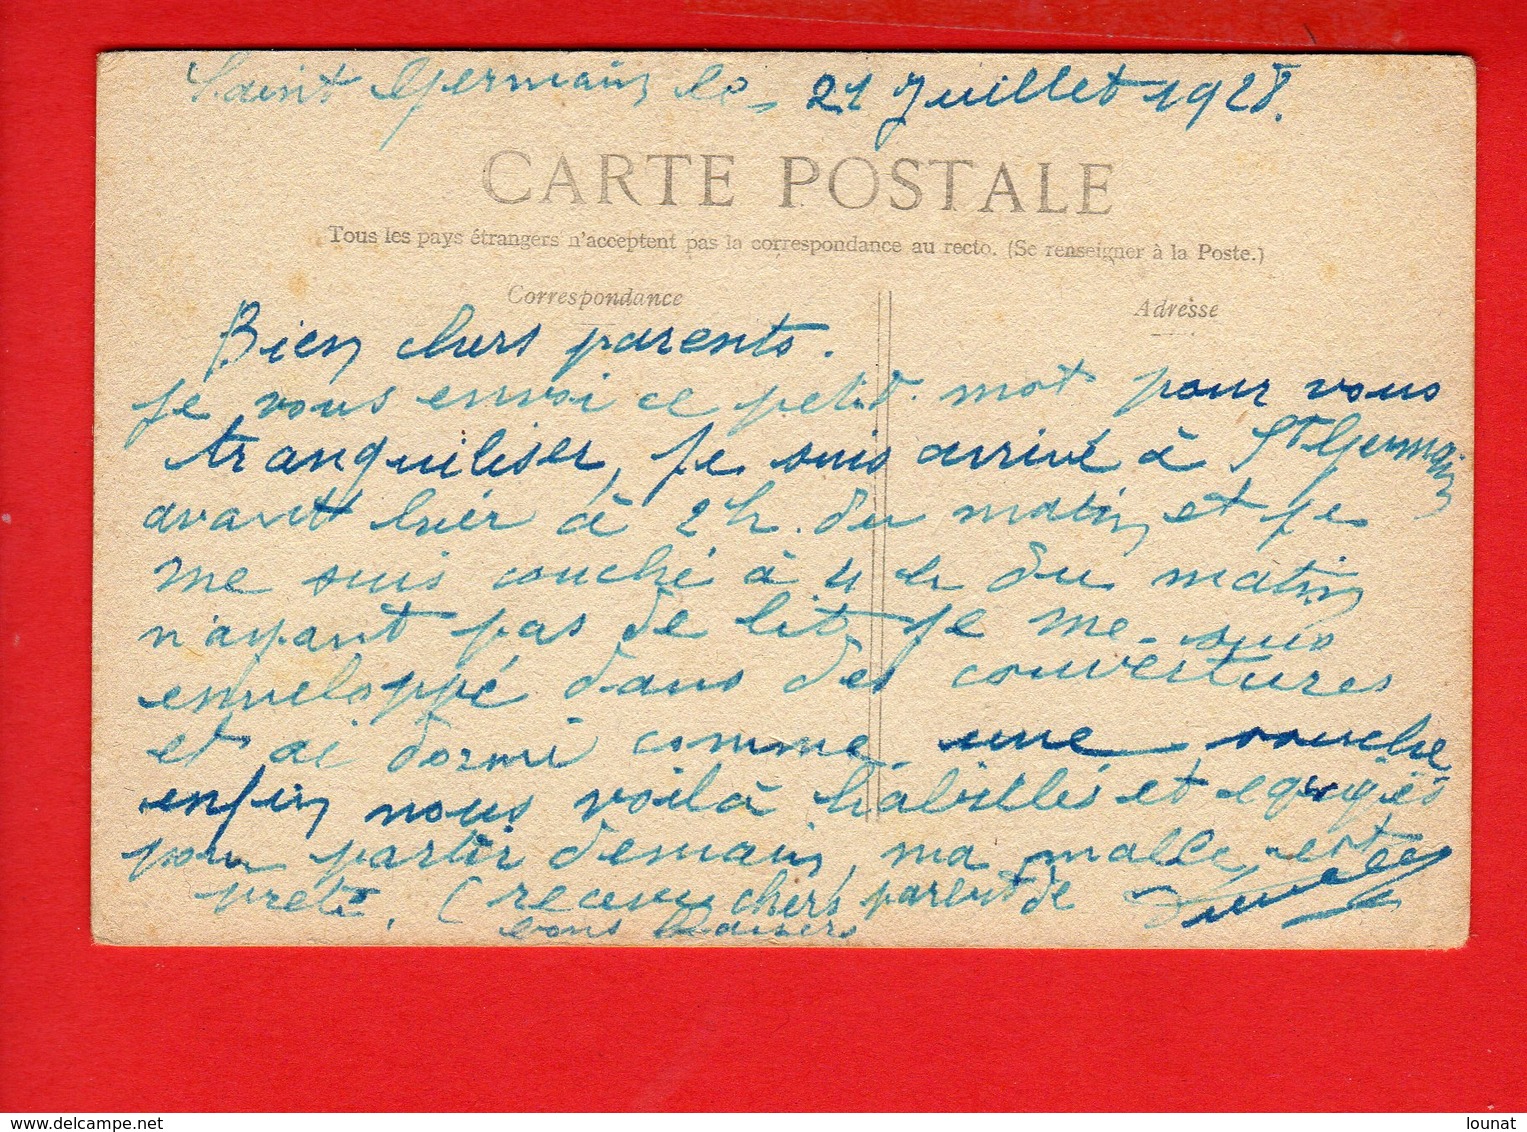 Saint Germain le 21 Juillet 1928.
CARTE POSTALE
Tous les pays étrangers n'acceptent pas la correspondance au recto. (Se renseigner à la Poste.)
Correspondance
Adresse
Bien chers parents.
je vous envoi ce petit mot pour vous
tranquiliser, je suis arrivé à St Germain
avant hier à 2 h. du matin et je
me suis couché à 4 h du matin
n'ayant pas de lit, je me suis
enveloppé dans des couvertures
et ai dormi comme une souche
enfin nous voilà habillés et equipés
pour partir demain, ma malle est
prete. (recevez chers parents de
bons baisers
lounat